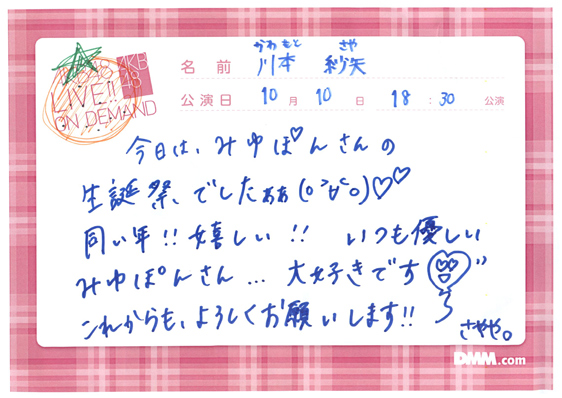 AKB48
LIVE!!
ON DEMAND
かわもと さや
名前 川本 紗矢
公演日 10月10日 18:30 公演
今日は、みゆぽんさんの
生誕祭、でしたぁぁ(o>∀<o)♡♡
同い年!!嬉しい!! いつも優しい
みゆぽんさん...大好きです
これからも、よろしくお願いします!!
さやや。
DMM.com